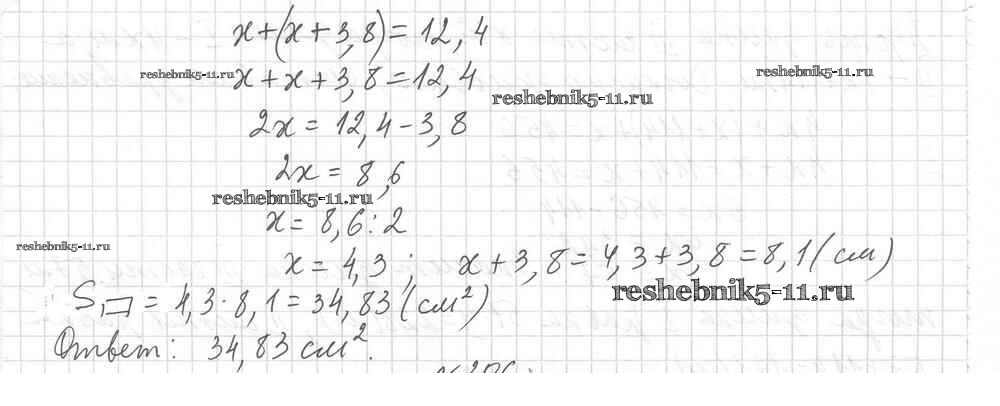 x+(x+3,8)=12,4
reshebnik5-11.ru x+x+3,8=12,4 reshebnik5-11.ru
reshebnik5-11.ru
2x=12,4-3,8
2x=8,6
reshebnik5-11.ru
x=8,6:2
reshebnik5-11.ru
x=4,3; x+3,8=4,3+3,8=8,1(см)
S▭=4,3·8,1=34,83(см²)
reshebnik5-11.ru
Ответ: 34,83 см².